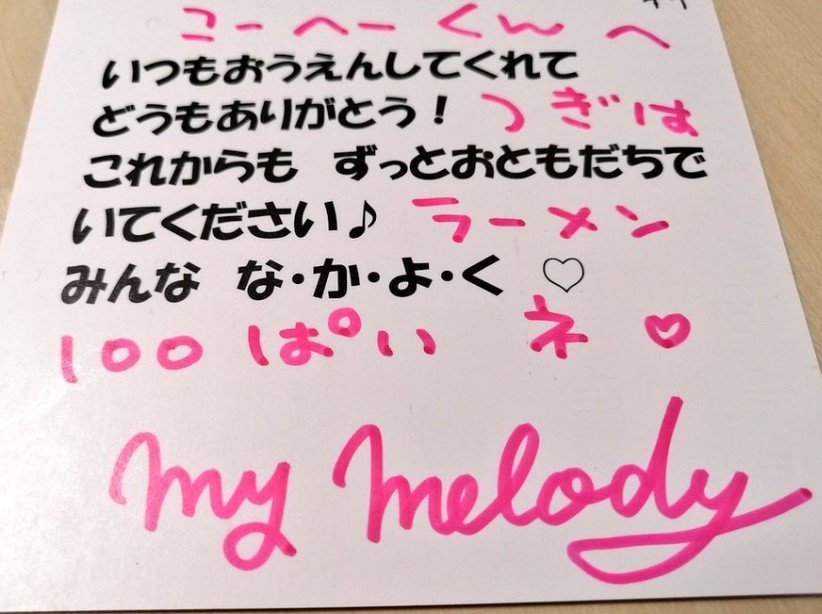 こーへーくんへ
いつもおうえんしてくれて
どうもありがとう！ つぎは
これからも ずっとおともだちで
いてください♪ ラーメン
みんな な・か・よ・く ♡
100ぱい ネ ♡
my melody